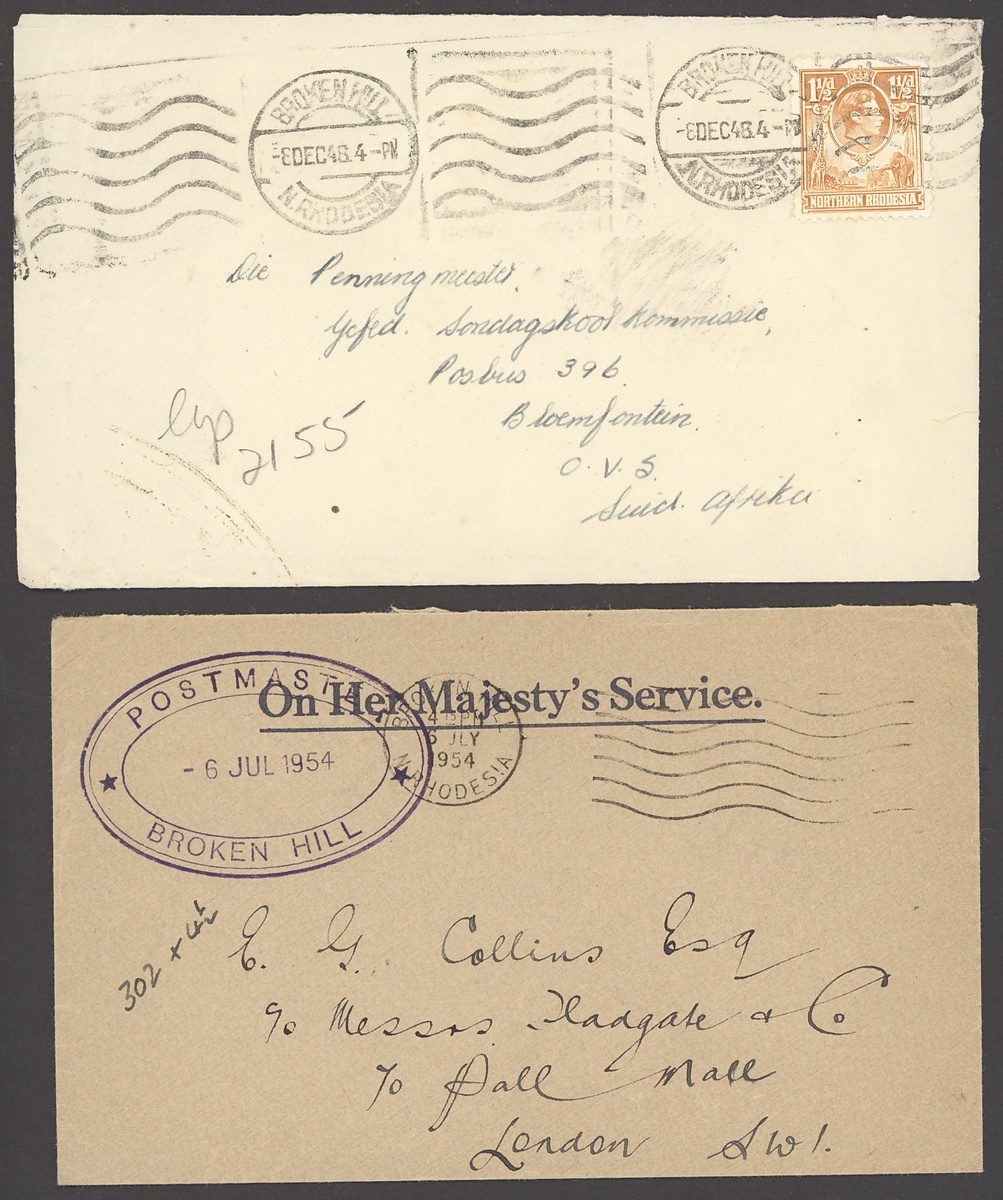 BROKEN HILL
-8DEC48.4-PM
N.RHODESIA
BROKEN HILL
-8DEC48.4-PM
N.RHODESIA
1½d 1½d
NORTHERN RHODESIA
Die Penningmeester.
Gefed. Sondagskool Kommissie,
Posbus 396.
Bloemfontein.
O.V.S.
Suid. Afrika
2155
On Her Majesty's Service.
POSTMASTER
- 6 JUL 1954
BROKEN HILL
4 PM
6 JLY
1954
N.RHODESIA
302 + 4½
E. G. Collins Esq
c/o Messrs Hadgate & Co
70 Pall Mall
London SW1.